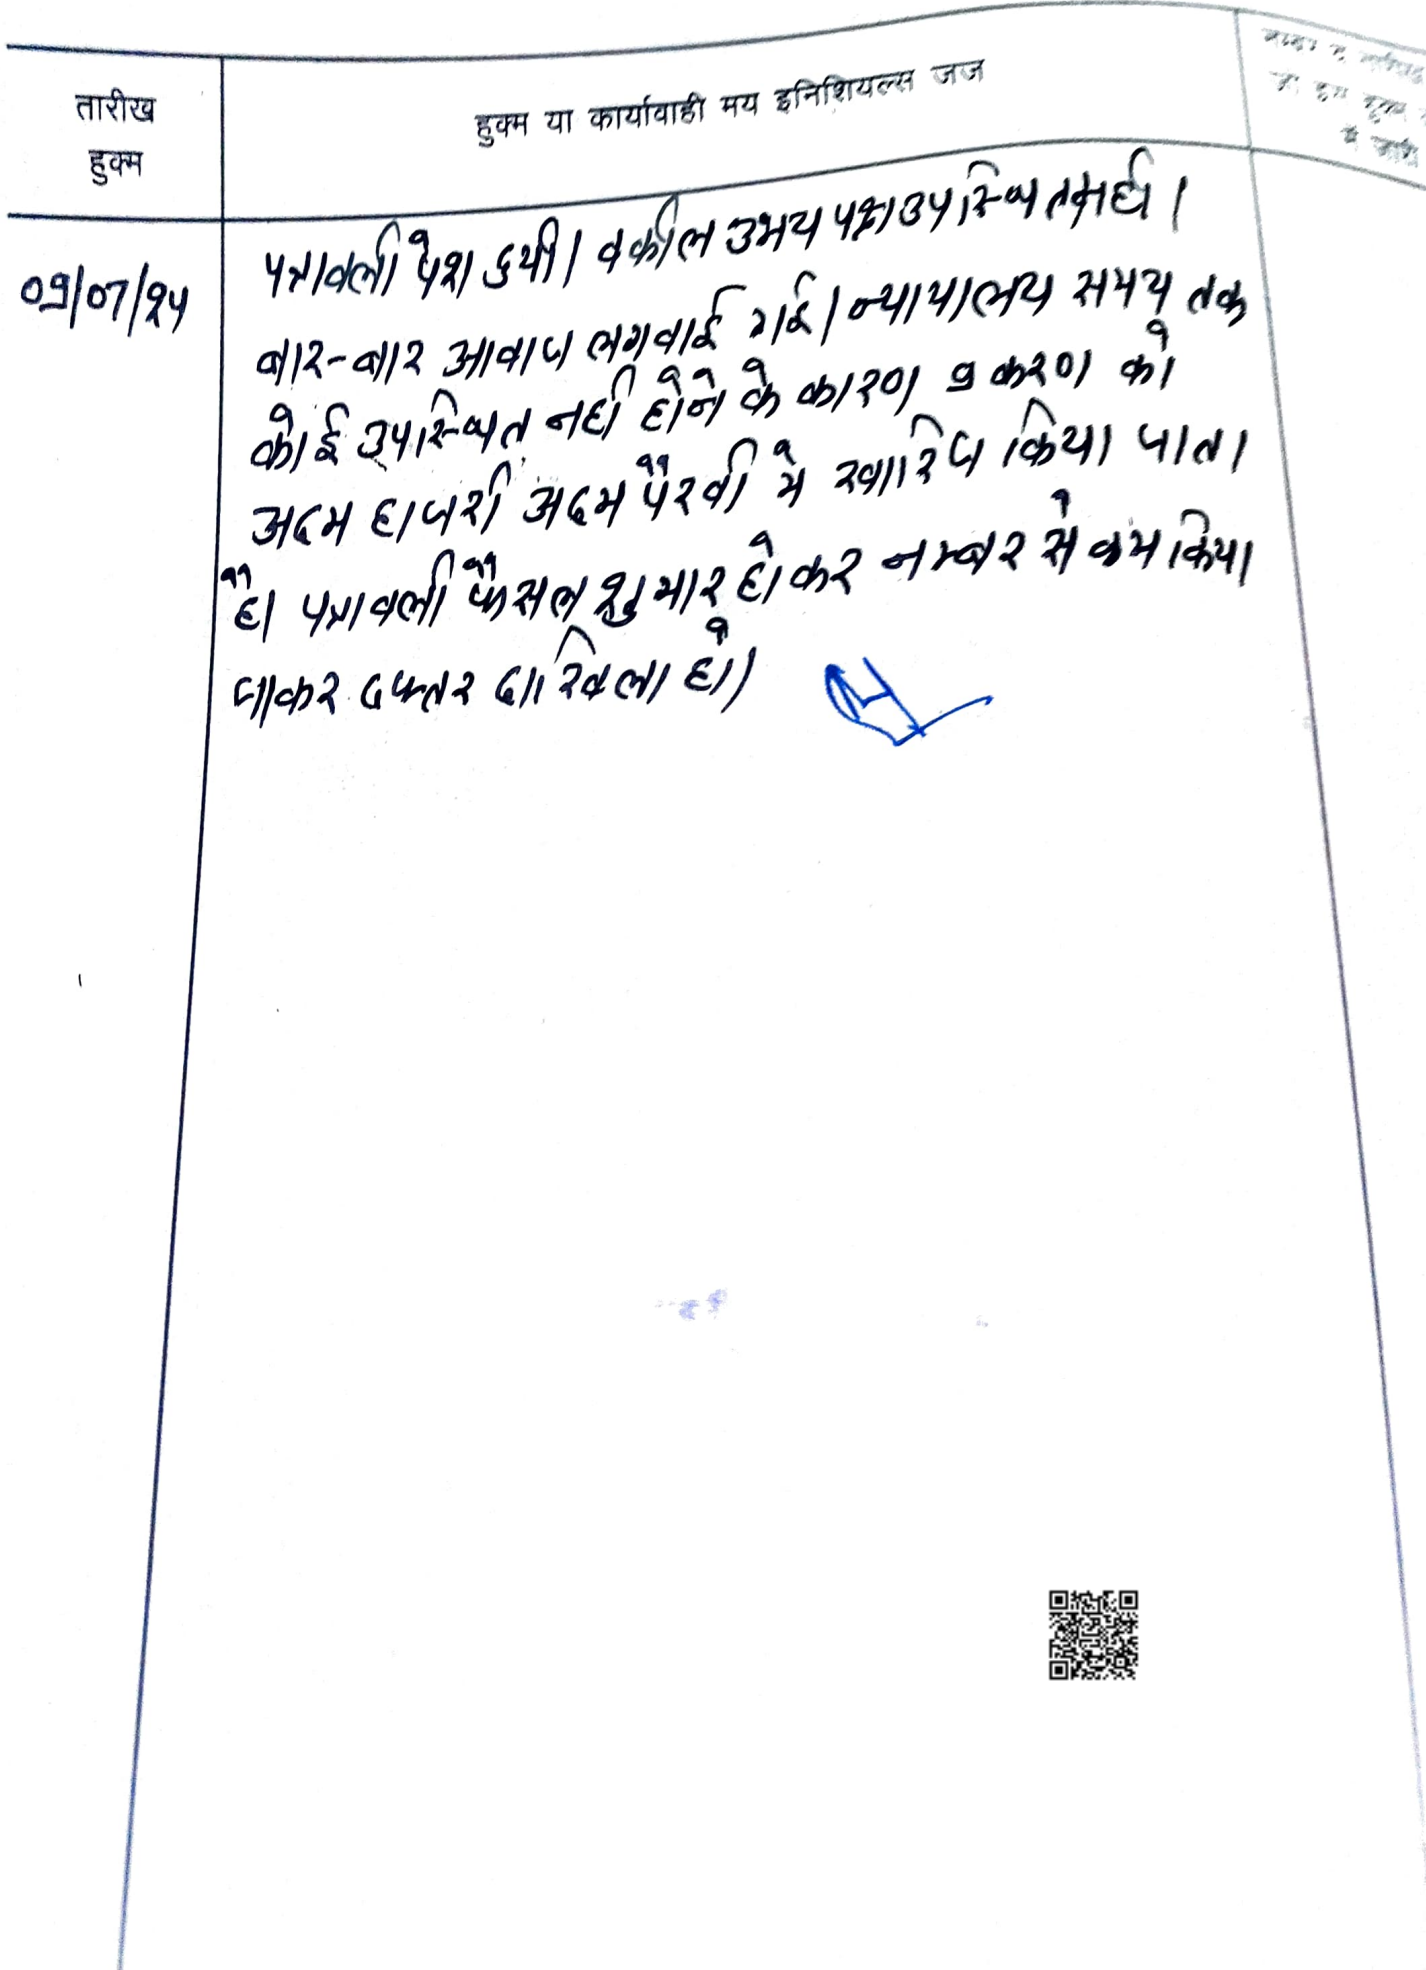 तारीख
हुक्म
हुक्म या कार्यावाही मय इनिशियल्स जज
पत्रावली पेश हुयी। वकील उभय पक्ष उपस्थित नहीं।
बार-बार आवाज लगवाई गई। न्यायालय समय तक
कोई उपस्थित नहीं होने के कारण प्रकरण को
अदम हाजरी अदम पैरवी मे खारिज किया जाता
है। पत्रावली फैसल शुमार होकर नम्बर से कम किया
जाकर दफ्तर दाखिल हो।